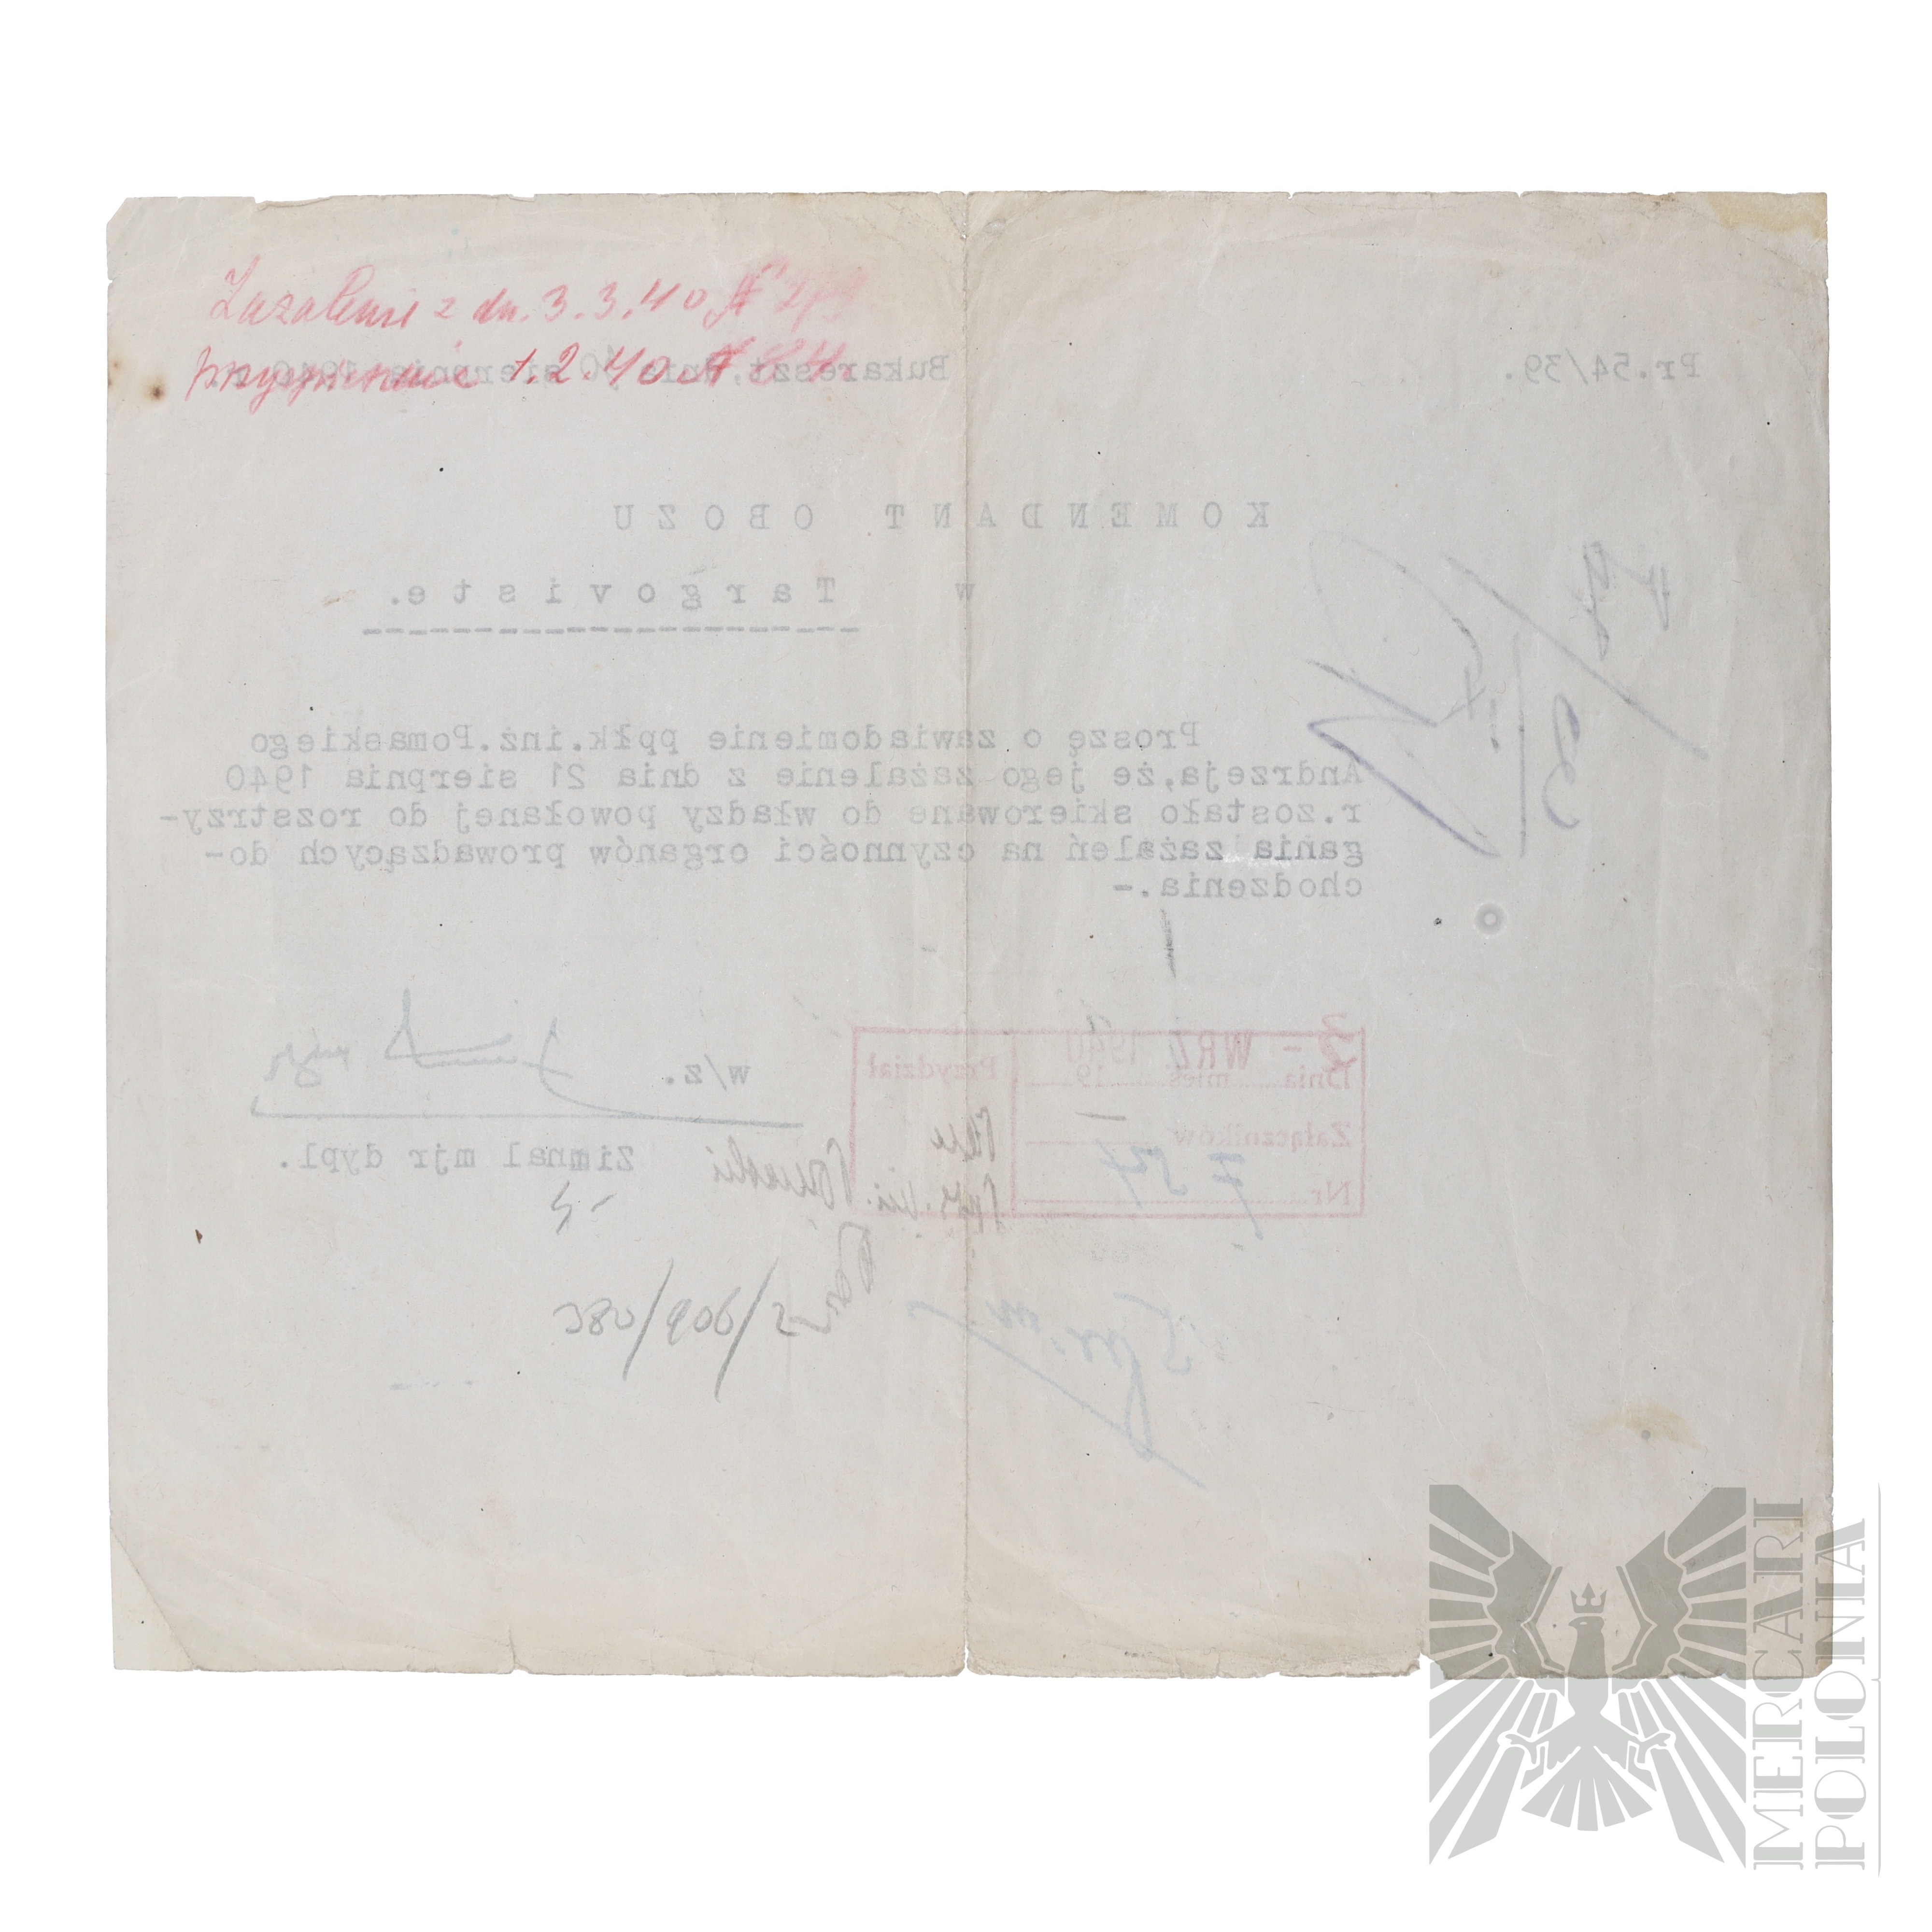 Zażalenie z dn. 3.3.40 №
przypomnienie 1.2.40 № 84
Pr.54/39.
Bukareszt, dnia sierpnia 1940 r.
KOMENDANT OBOZU
w Targoviste.
Proszę o zawiadomienie ppłk.inż.Pomaskiego
Andrzeja,że jego zażalenie z dnia 21 sierpnia 1940
r.zostało skierowane do władzy powołanej do rozstrzy-
gania zażaleń na czynności organów prowadzących do-
chodzenia.-
3 - WRZ 1940
Dnia mieś 19
Przydział
Załączników —
Nr 754
w/z.
Zimnal mjr dypl.
380/906/2
MERCARI
POLONIA